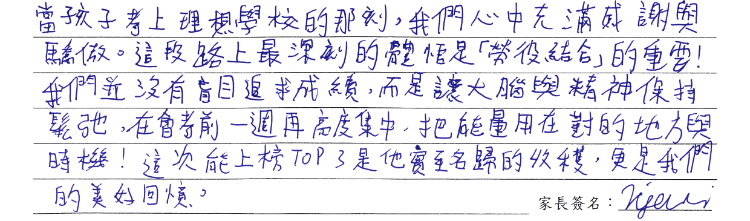 當孩子考上理想學校的那刻，我們心中充滿感謝與
驕傲。這段路上最深刻的體悟是「勞役結合」的重要！
我們並沒有盲目追求成績，而是讓大腦與精神保持
鬆弛，在會考前一週再高度集中，把能量用在對的地方與
時機！這次能上榜TOP 3是他實至名歸的收穫，更是我們
的美好回憶。
家長簽名：